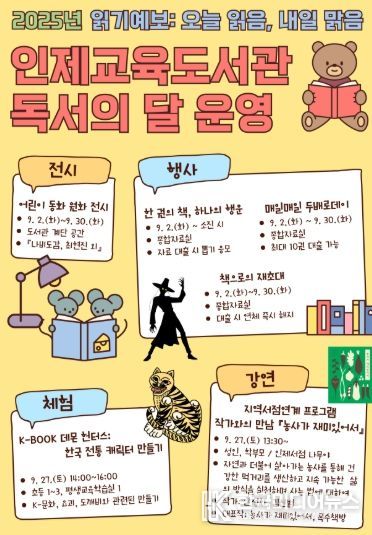 2025년 읽기예보: 오늘 읽음, 내일 맑음
인제교육도서관
독서의 달 운영
전시
어린이 동화 원화 전시
• 9. 2.(화)~9. 30.(화)
• 도서관 계단 공간
• 『나비도감, 최현진 외』
행사
한 권의 책, 하나의 행운
• 9. 2.(화) ~ 소진 시
• 종합자료실
• 자료 대출 시 뽑기 응모
매일매일 두배로데이
• 9. 2.(화) ~ 9. 30.(화)
• 종합자료실
• 최대 10권 대출 가능
책으로의 재초대
• 9. 2.(화)~9. 30.(화)
• 종합자료실
• 대출 시 연체 즉시 해지
체험
K-BOOK 데몬 헌터스:
한국 전통 캐릭터 만들기
• 9. 27.(토) 14:00~16:00
• 초등 1~3, 평생교육학습실 1
• K-문화, 요괴, 도깨비와 관련된 만들기
강연
지역서점연계 프로그램
작가와의 만남 『농사가 재미있어서』
• 9. 27.(토) 13:30~
• 성인, 학부모 / 인제서점 나무이
• 자연과 더불어 살아가는 농사를 통해 건
강한 먹거리를 생산하고 지속 가능한 삶
의 방식을
• 작가:
• 대표작: 농사가 재미있어서, 옥수책방